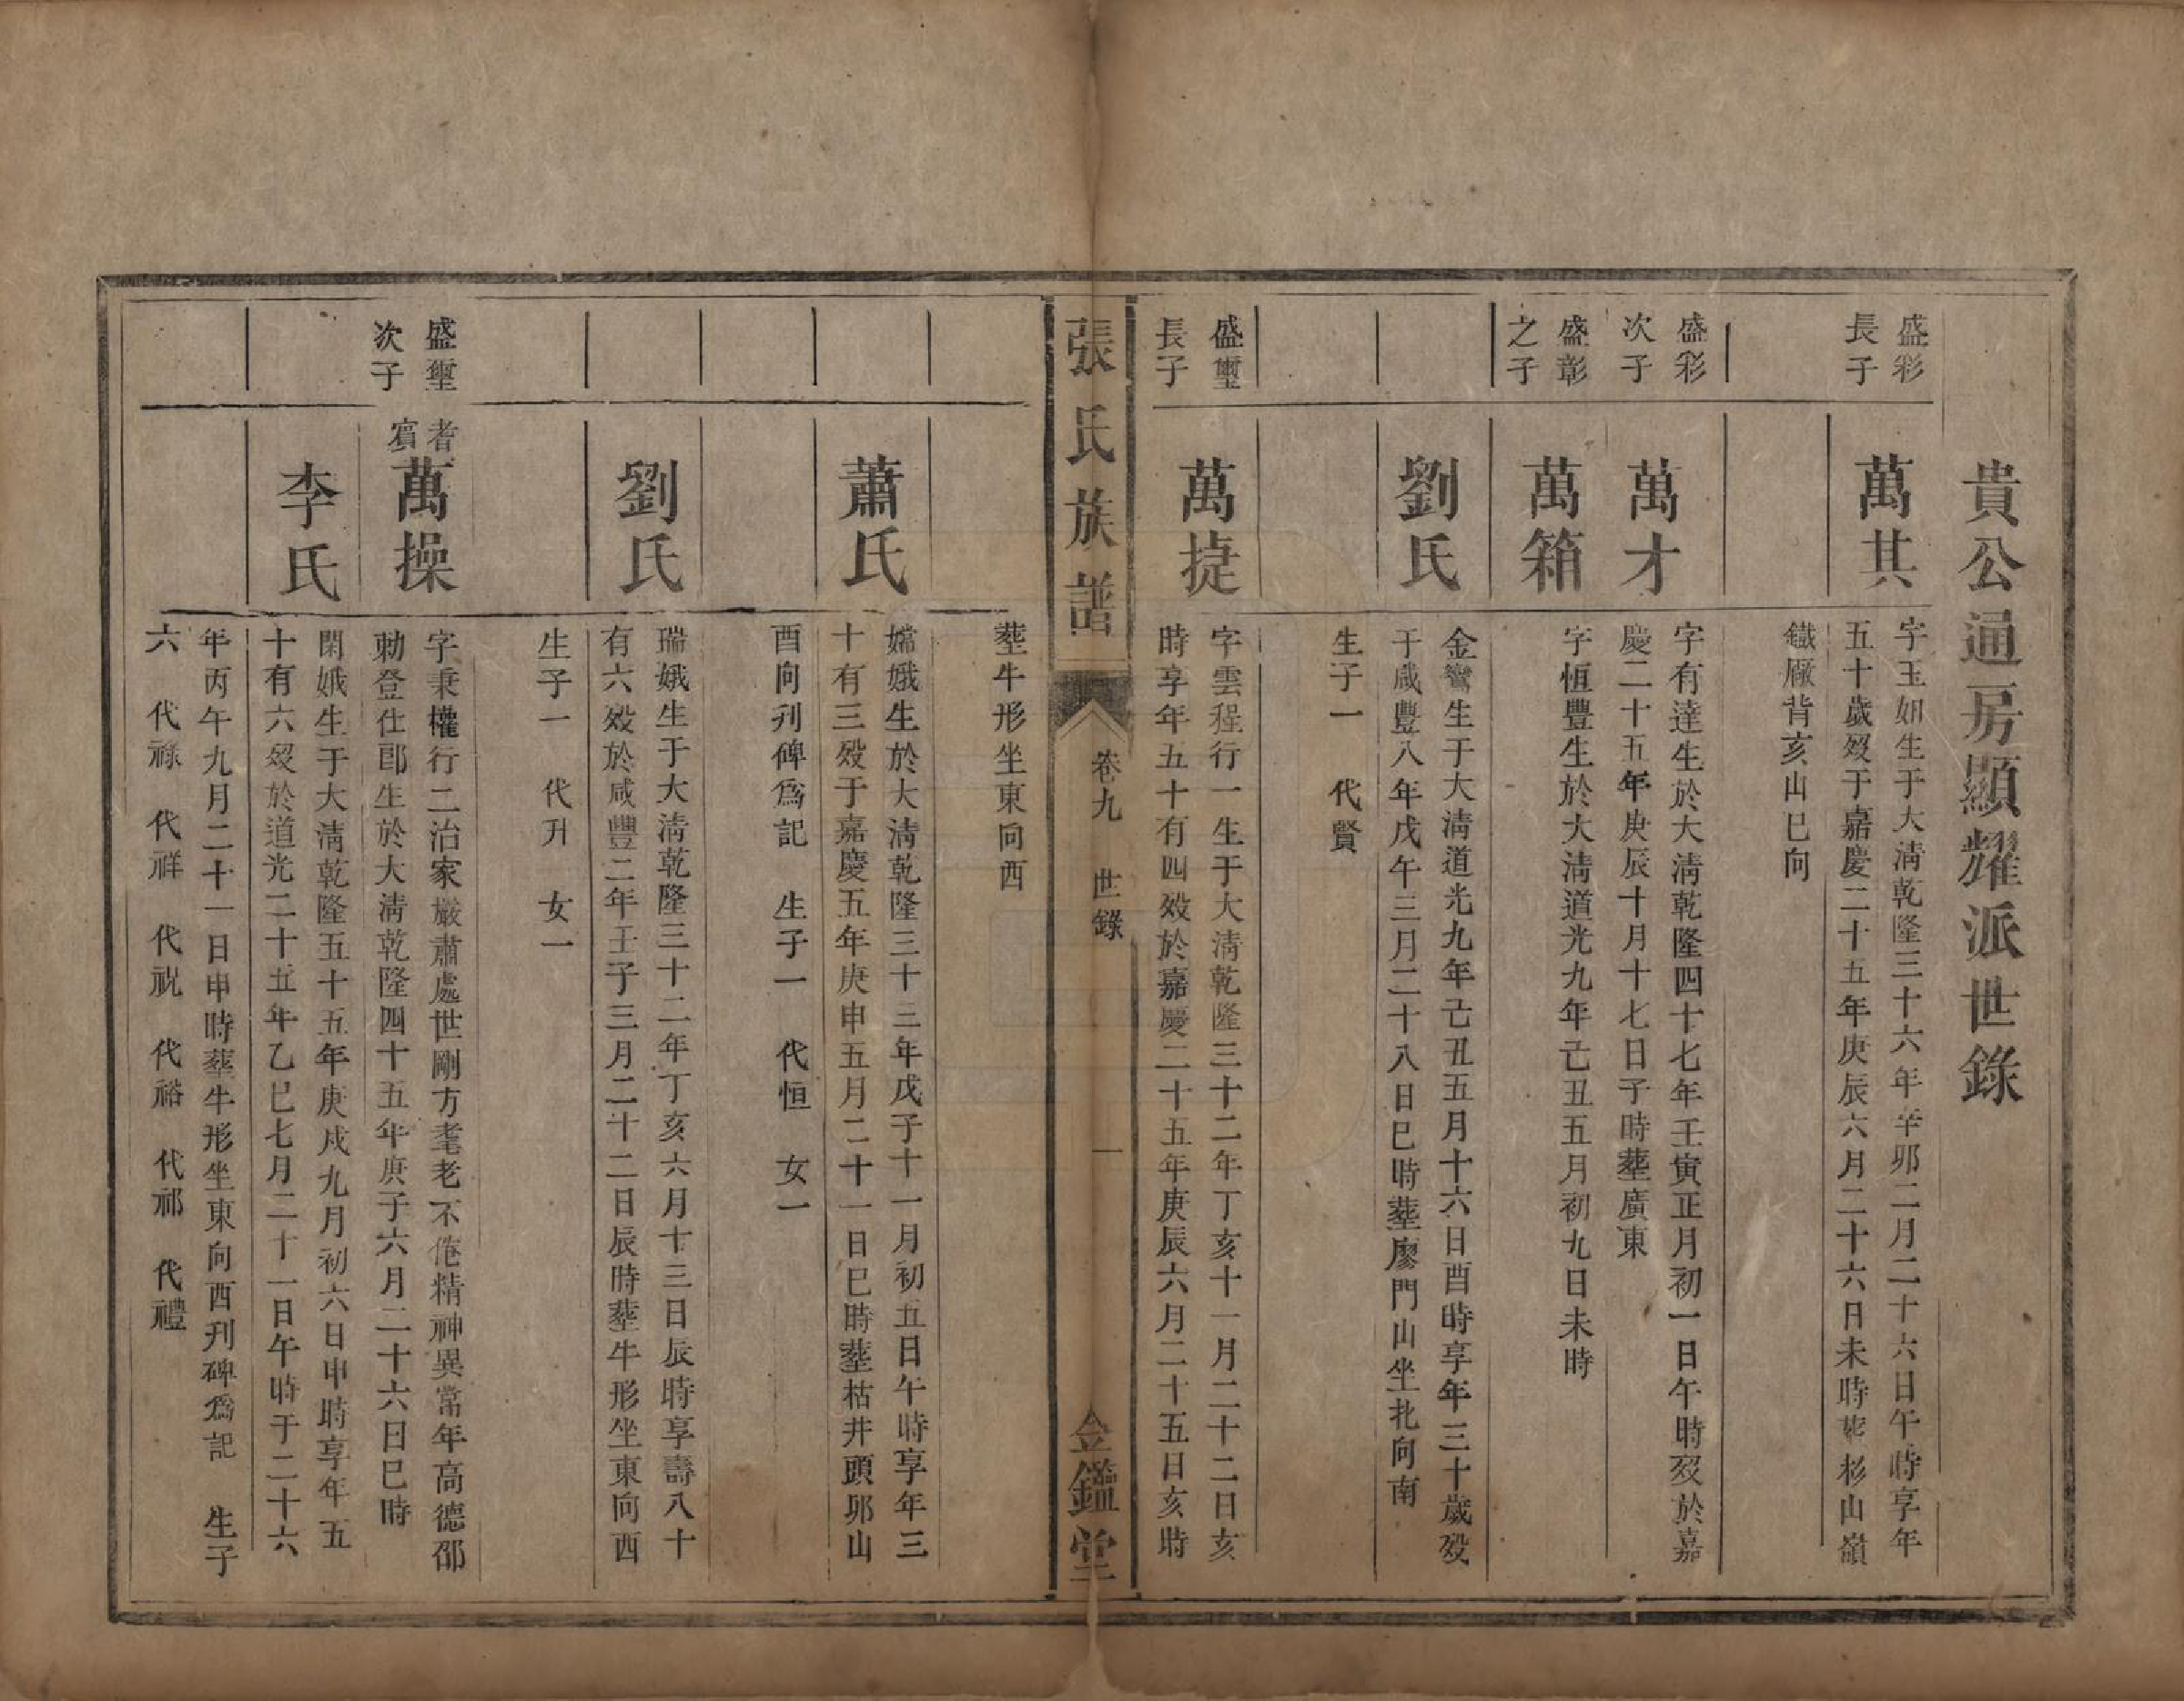 貴公通房顯耀派世錄
盛彩
長子
萬其
字玉如生于大淸乾隆三十六年辛卯二月二十六日午時享年
五十歲歿于嘉慶二十五年庚辰六月二十六日未時葬杉山嶺
鐵厰背亥山巳向
盛彩
次子
萬才
字有達生於大淸乾隆四十七年壬寅正月初一日午時歿於嘉
慶二十五年庚辰十月十七日子時塟廣東
盛彰
之子
萬箱
字恒豐生於大淸道光九年己丑五月初九日未時
劉氏
金鸞生于大淸道光九年己丑五月十六日酉時享年三十歲歿
于咸豐八年戊午三月二十八日巳時塟廖門山坐北向南
生子一 代賢
盛璽
長子
萬㨗
字雲程行一生于大淸乾隆三十二年丁亥十一月二十二日亥
時享年五十有四歿於嘉慶二十五年庚辰六月二十五日亥時
張氏族譜
卷九 世錄
一
金鑑堂
塟牛形坐東向西
蕭氏
嫦娥生於大淸乾隆三十三年戊子十一月初五日午時享年三
十有三歿于嘉慶五年庚申五月二十一日巳時塟枯井頭卯山
酉向刋碑爲記 生子一 代恒 女一
劉氏
瑞娥生于大淸乾隆三十二年丁亥六月十三日辰時享壽八十
有六歿於咸豐二年壬子三月二十二日辰時塟牛形坐東向西
生子一 代升 女一
盛璽
次子
耆
賔
萬操
字秉權行二治家嚴肅處世剛方耄老不倦精神異常年高德邵
勅登仕郎生於大淸乾隆四十五年庚子六月二十六日巳時
李氏
閑娥生于大淸乾隆五十五年庚戌九月初六日申時享年五
十有六歿於道光二十五年乙巳七月二十一日午時于二十六
年丙午九月二十一日申時塟牛形坐東向酉刋碑爲記 生子
六 代祿 代祥 代祝 代裕 代祁 代禮